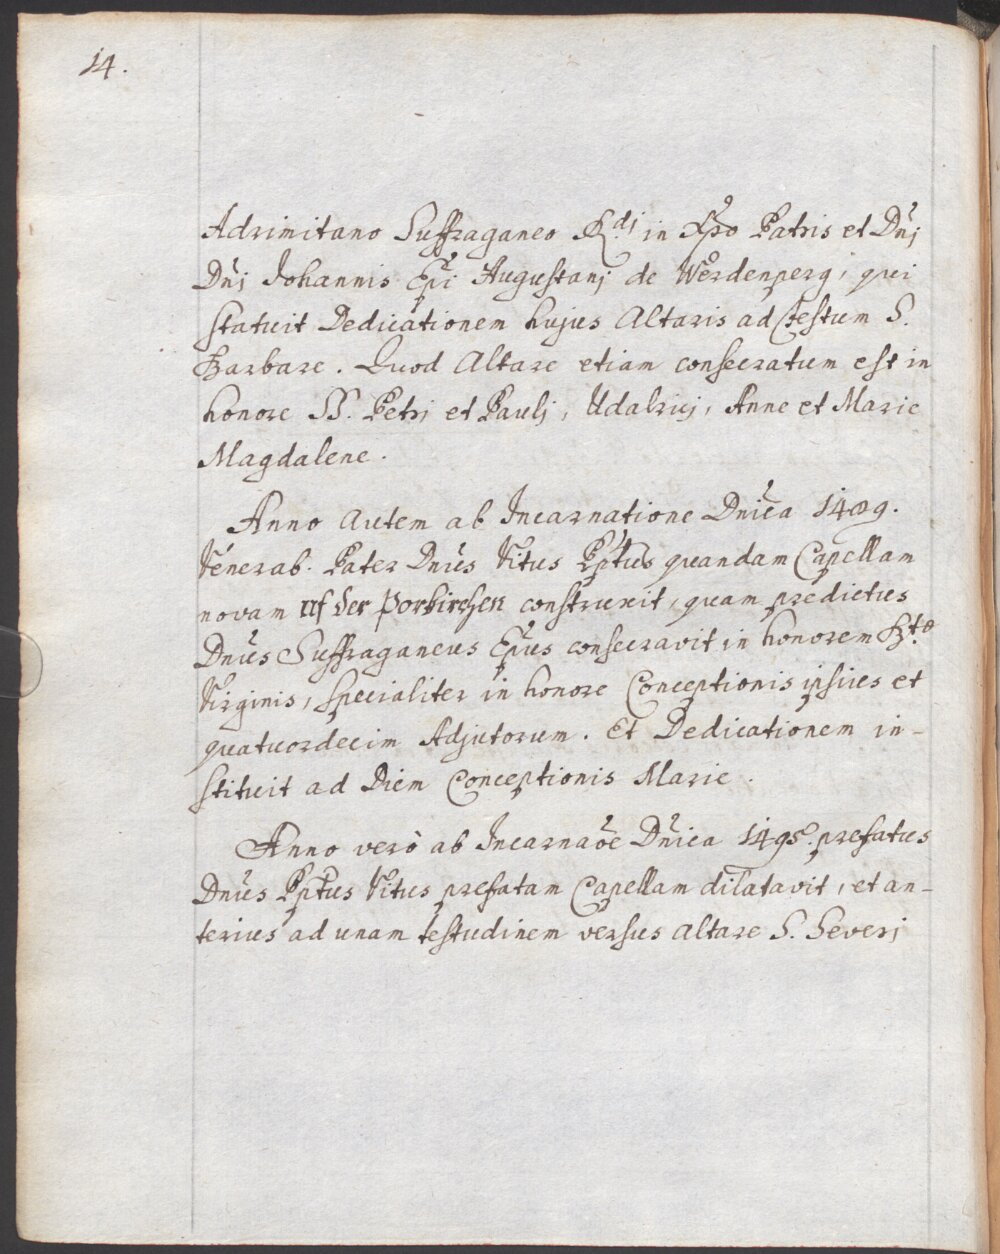 14.
Adrimitano Suffraganeo R.dj in Xp̃o Patris et Dñj
Dñj Johannis Ep̃i Augustanj de Werdenperg, qui
statuit Dedicationem hujus Altaris ad Festum S.
Barbare. Quod Altare etiam consecratum est in
honore SS. Petrj et Paulj, Udalricj, Anne et Marie
Magdalene.
Anno autem ab Incarnatione Dñica 1489.
Venerab. Pater Dñus Vitus Pp̃tus quandam Capellam
novam uf der porkirchen construxit, quam predictus
Dñus Suffraganeus Ep̃us consecravit in honorem B.te
Virginis, specialiter in honore Conceptionis ipsius et
quatuordecim Adjutorum. Et Dedicationem in-
stituit ad Diem Conceptionis Marie.
Anno verò ab Incarnaõe Dñica 1495. prefatus
Dñus Pp̃tus Vitus prefatam Capellam dilatavit, et an-
terius ad unam testudinem versus Altare S. Severj